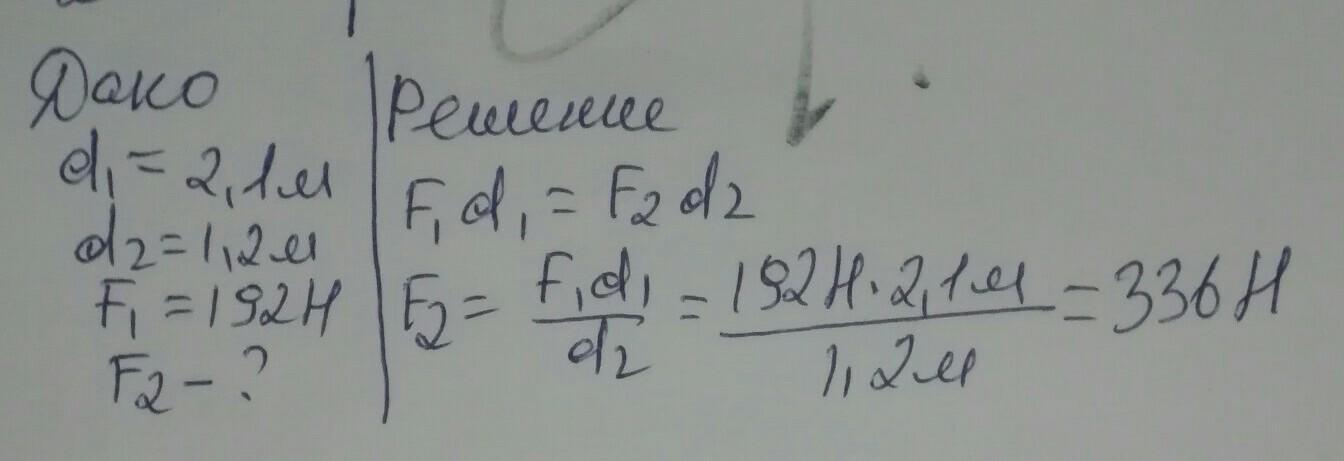 Дано
d₁ = 2,1м
d₂ = 1,2м
F₁ = 192Н
F₂ - ?
Решение
F₁d₁ = F₂d₂
F₂ = F₁d₁/d₂ = 192Н·2,1м/1,2м = 336Н